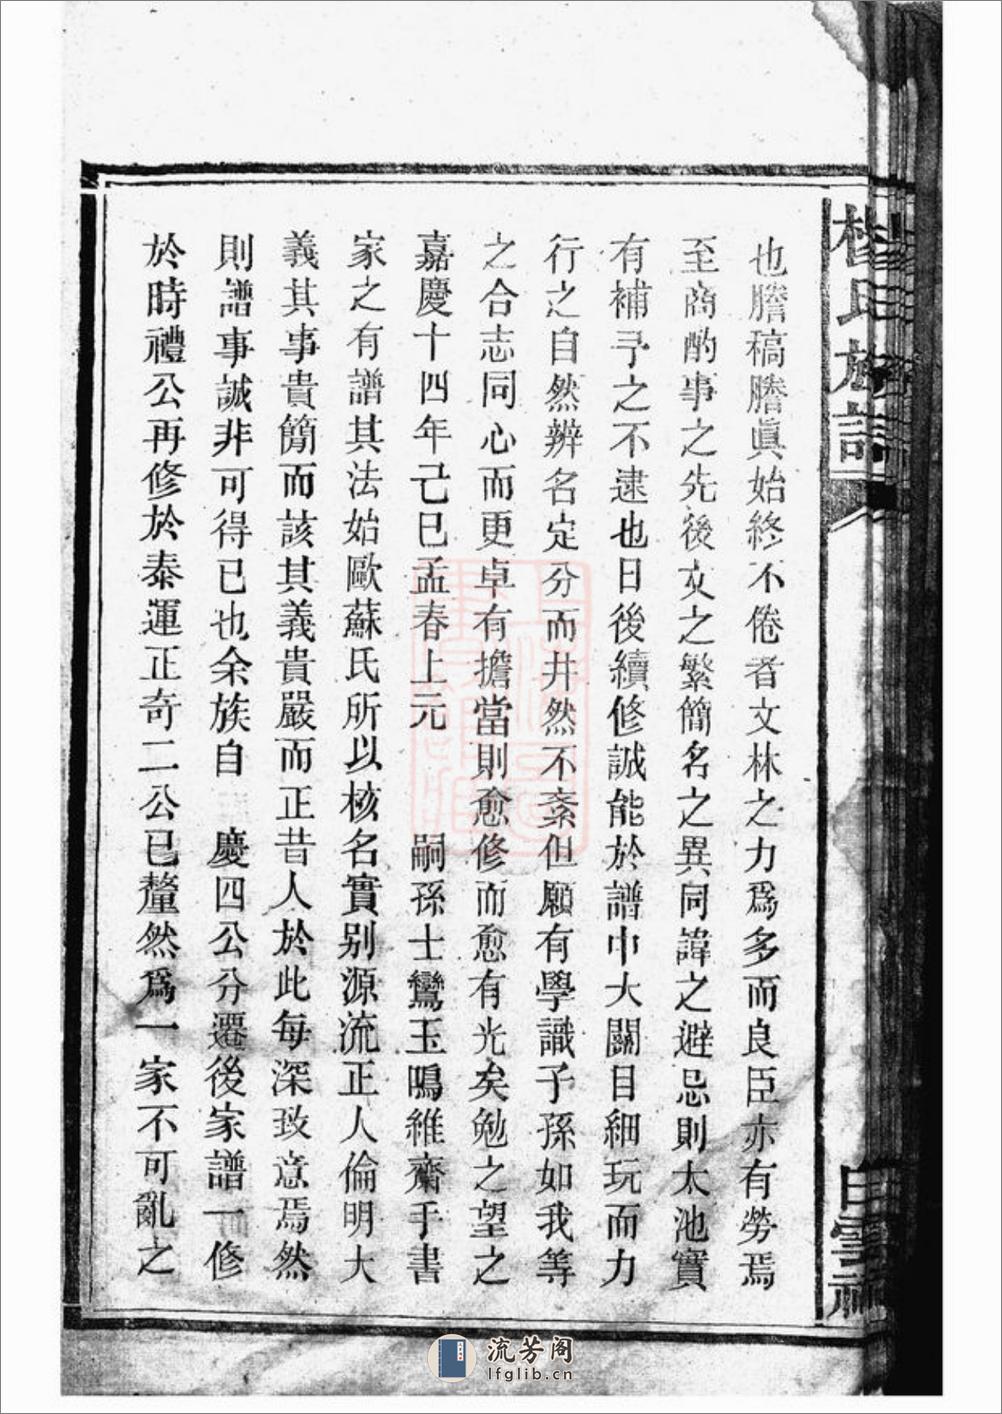 氏族譜
也謄稿謄眞始終不倦者文林之力爲多而良臣亦有勞焉
至商酌事之先後文之繁簡名之異同諱之避忌則太池實
有補予之不逮也日後續修誠能於譜中大關目細玩而力
行之自然辨名定分而井然不紊但願有學識子孫如我等
之合志同心而更卓有擔當則愈修而愈有光矣勉之望之
嘉慶十四年己巳孟春上元 嗣孫士鸞玉鳴維齋手書
家之有譜其法始歐蘇氏所以核名實别源流正人倫明大
義其事貴簡而該其義貴嚴而正昔人於此每深致意焉然
則譜事誠非可得已也余族自 慶四公分遷後家譜一修
於時禮公再修於泰運正奇二公已釐然爲一家不可亂之
白雲
流芳阁
lfglib.cn